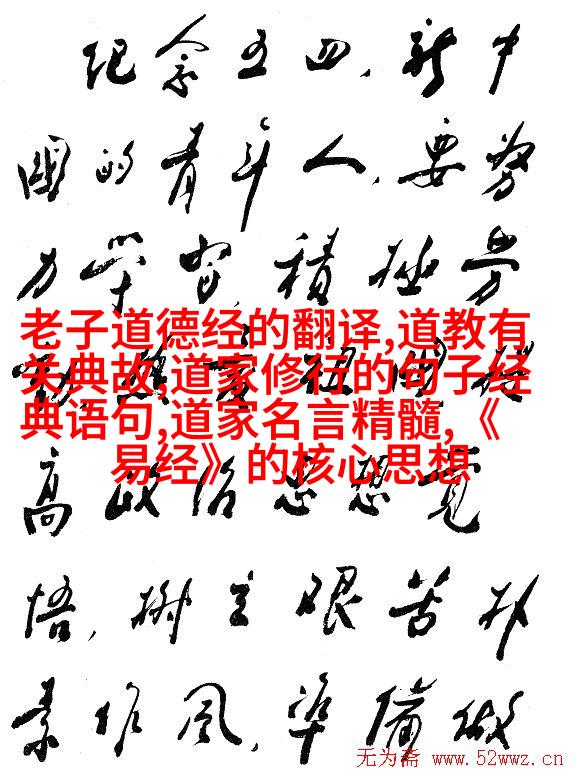 纪念五四,新中
國的青年人,要努
力学習,積極劳
老子道德经的翻译,道教有
关典故,道家修行的句子经
典语句,道家名言精髓,《
易经》的核心思想
高政治思想覺
悟,樹立艰苦朴
素作风,準備做
无为斋 www.52wwz.cn